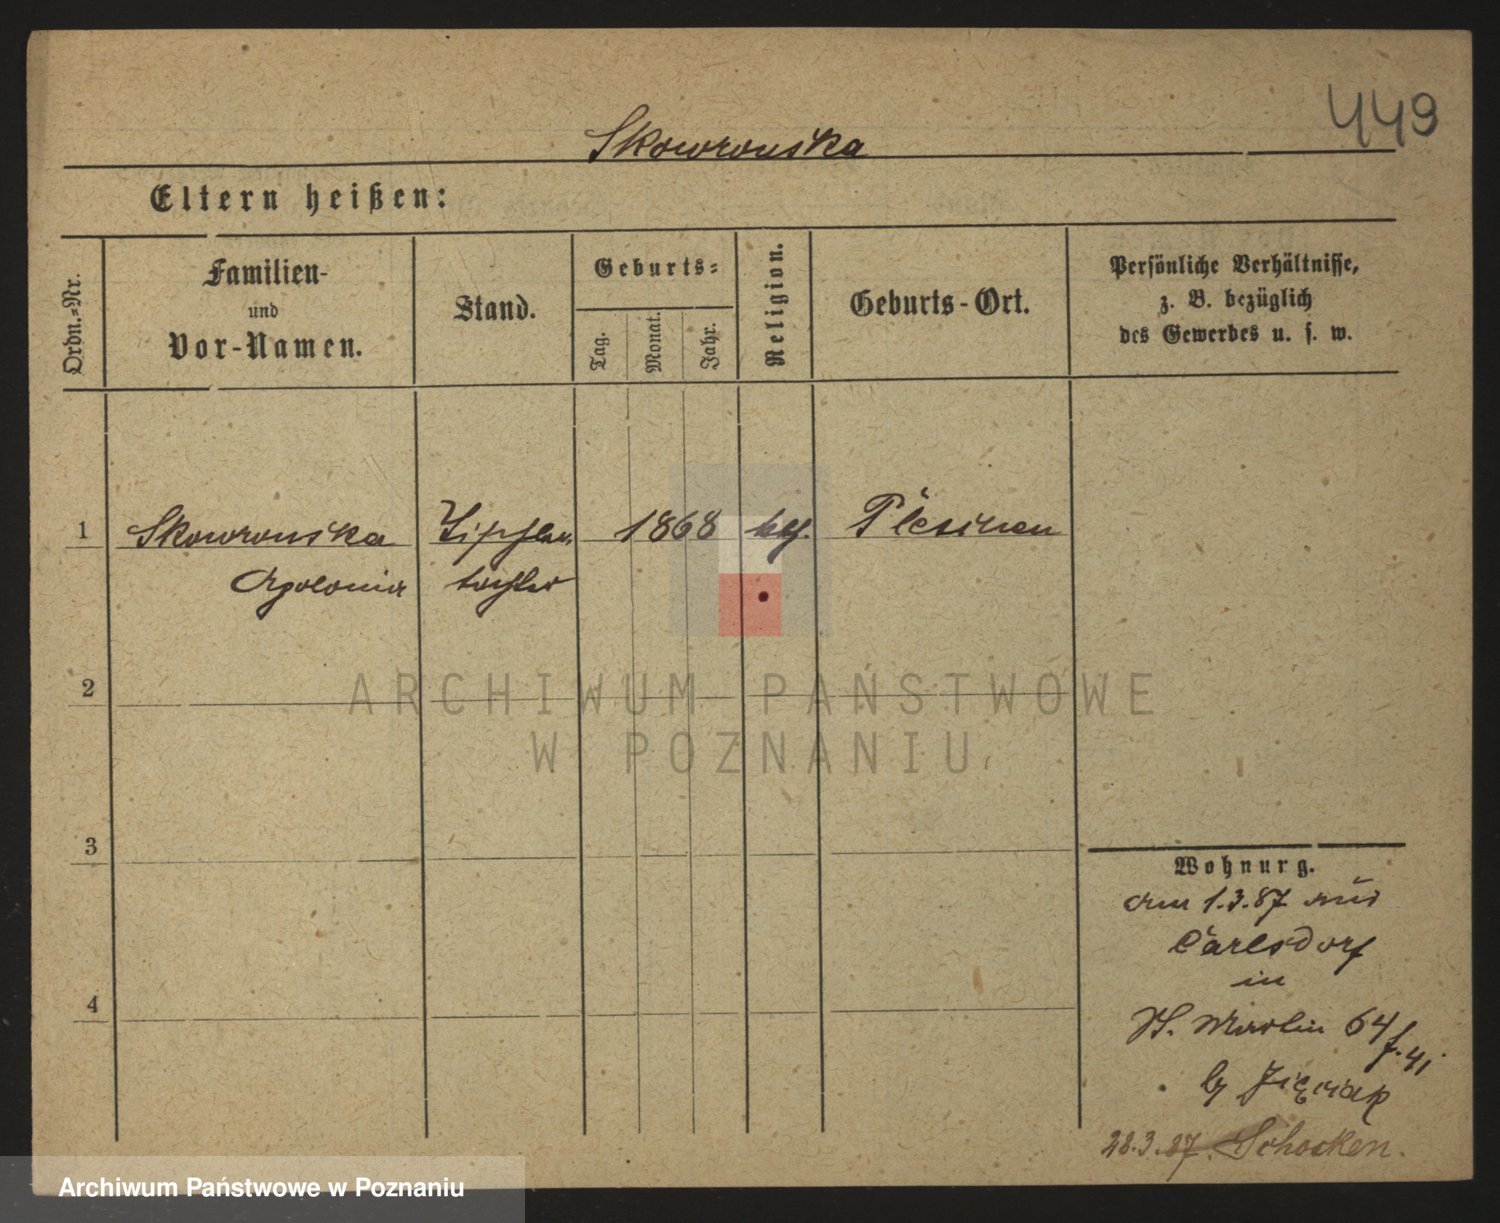 449
Skowronska
Eltern heißen:
Ordn.-Nr.
Familien-
und
Vor-Namen.
Stand.
Geburts-
Tag.
Monat.
Jahr.
Religion.
Geburts-Ort.
Persönliche Verhältnisse,
z. B. bezüglich
des Gewerbes u. s. w.
1 Skowronska 1868 Pleschen
Apolonia tochter
2
ARCHIWUM PAŃSTWOWE
W POZNANIU
3
4
Wohnung.
am 1.3.87 aus
Carlsdorf
in
St. Martin 64
28.3.87. Schocken.
Archiwum Państwowe w Poznaniu